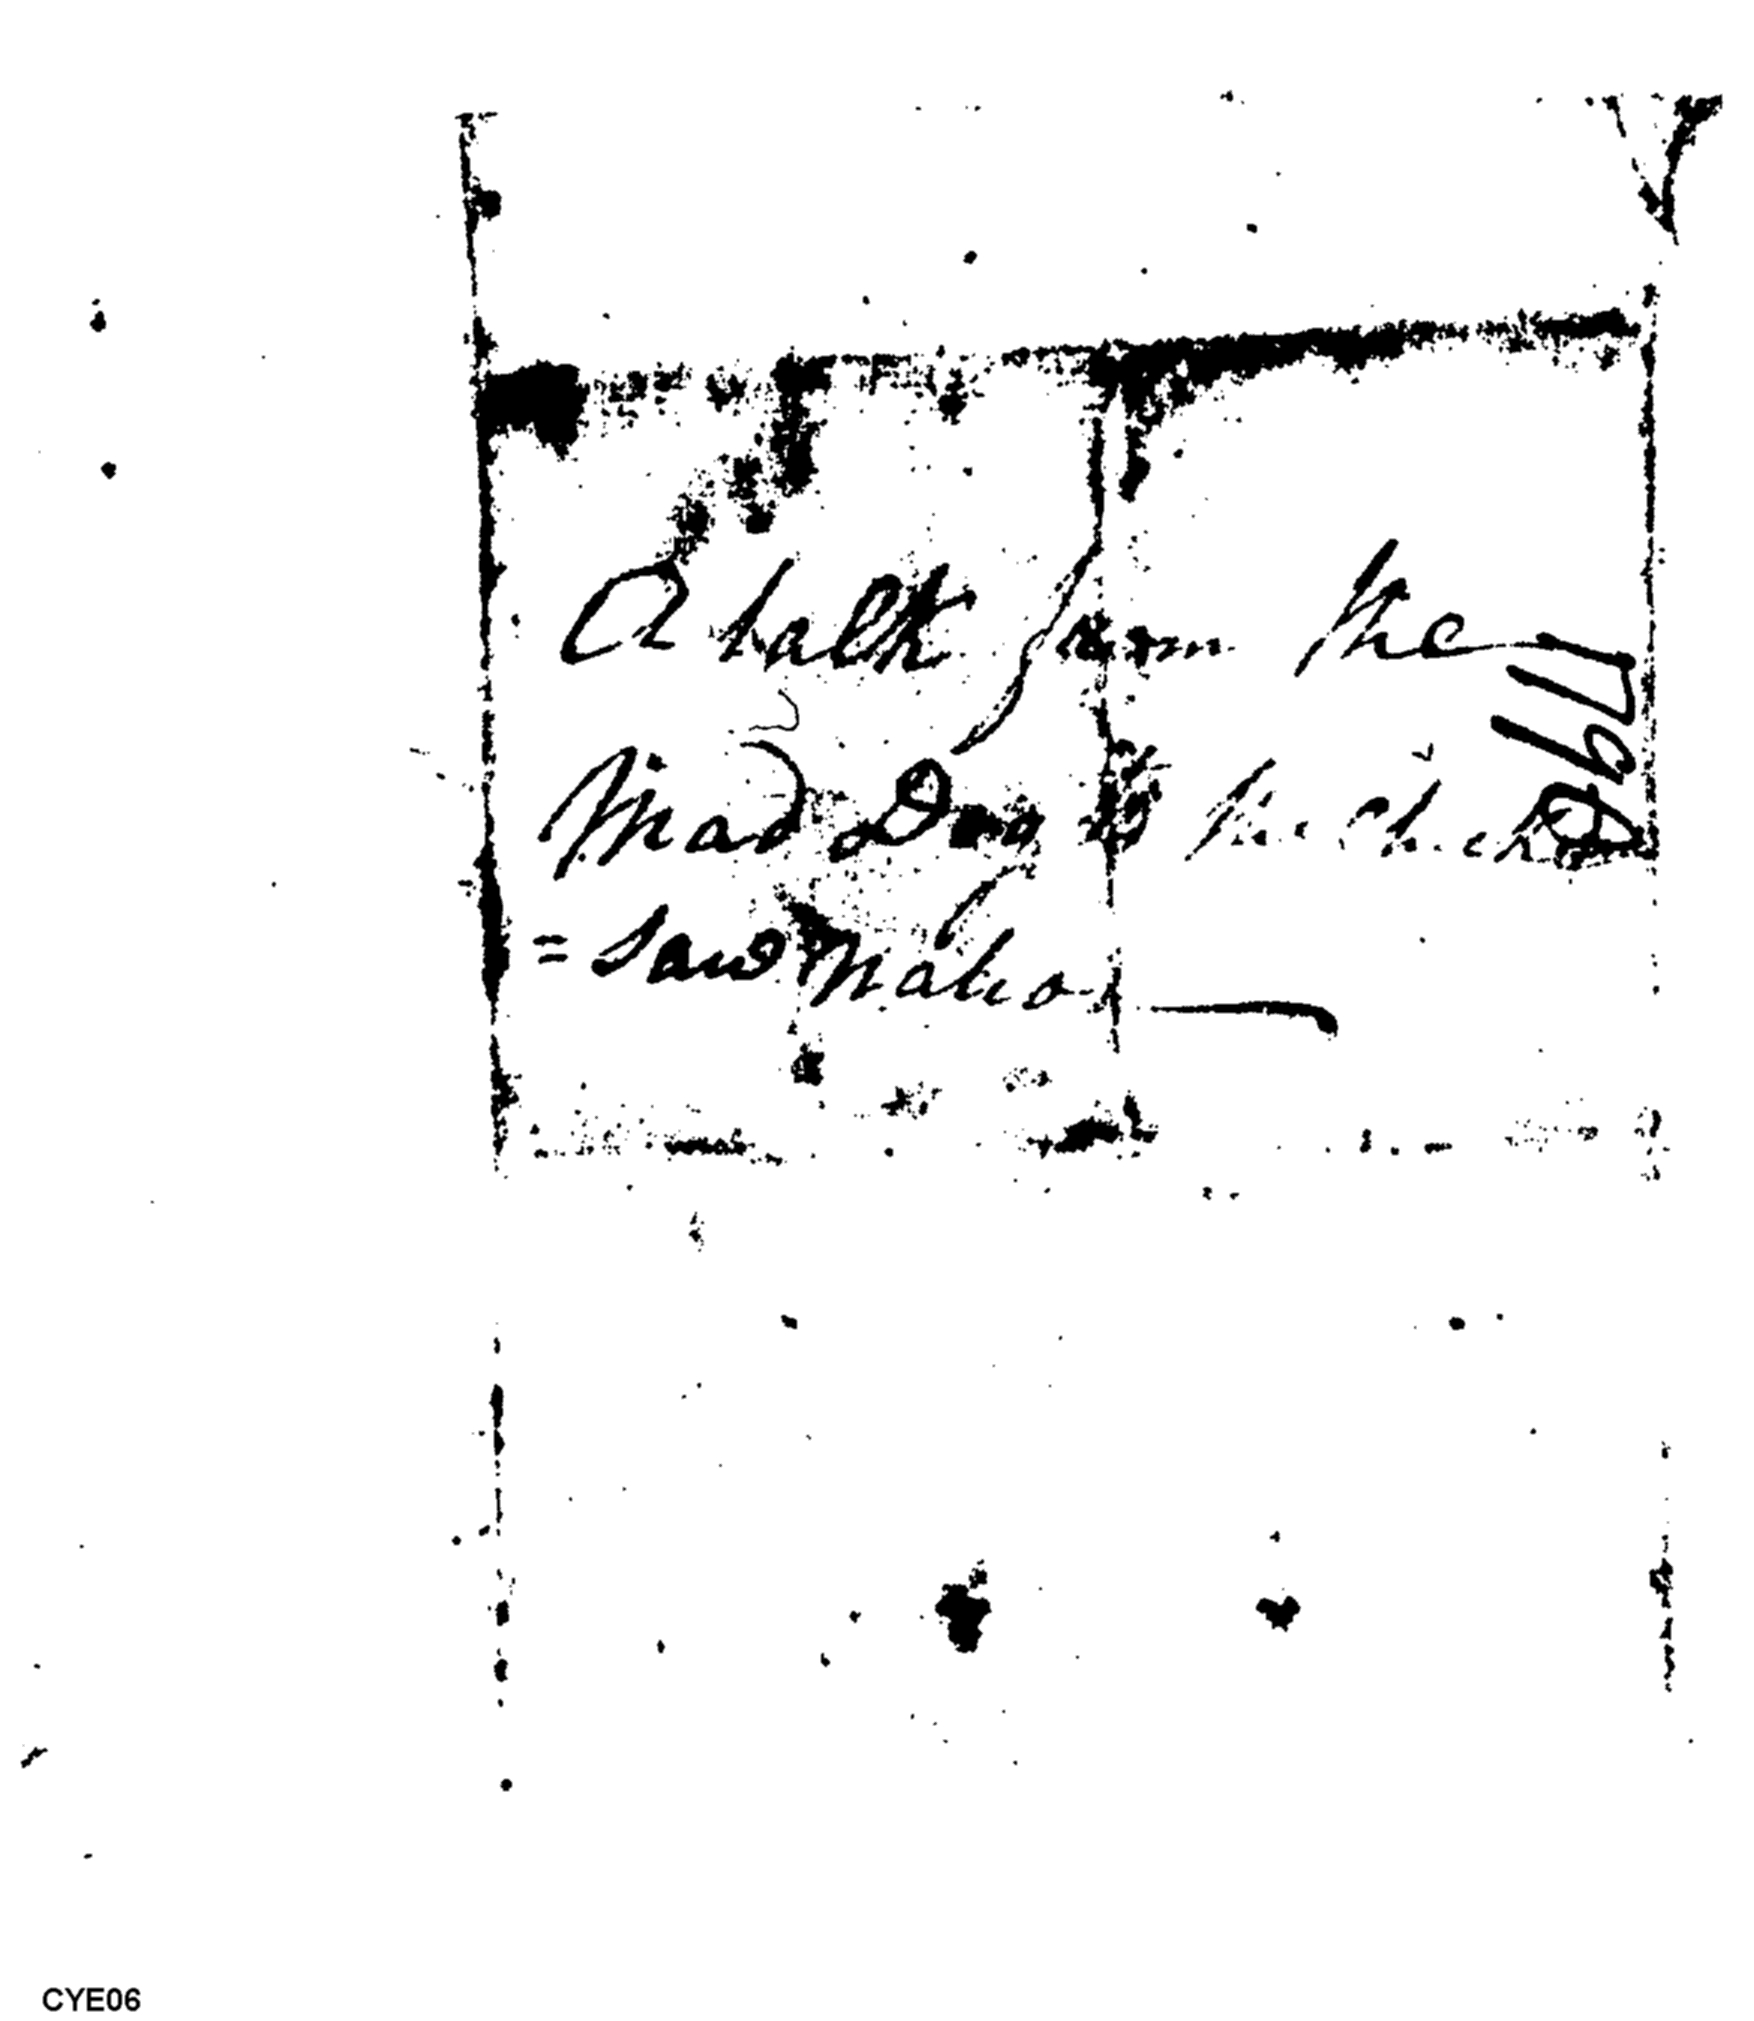 A talk from the
Mad Dog to the Chick
= Saw Nation
CYE06